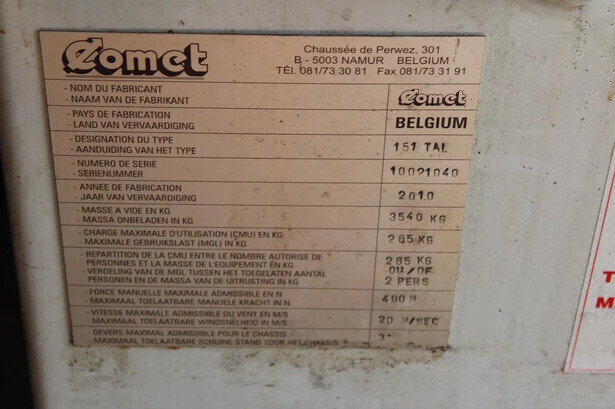 Comet
Chaussée de Perwez, 301
B - 5003 NAMUR BELGIUM
TÉl. 081/73 30 81 Fax 081/73 31 91
- NOM DU FABRICANT
- NAAM VAN DE FABRIKANT
Comet
- PAYS DE FABRICATION
- LAND VAN VERVAARDIGING
BELGIUM
- DESIGNATION DU TYPE
- AANDUIDING VAN HET TYPE
151 TAL
- NUMERO DE SERIE
- SERIENUMMER
10021040
- ANNEE DE FABRICATION
- JAAR VAN VERVAARDIGING
2010
- MASSE A VIDE EN KG
- MASSA ONBELADEN IN KG
3540 KG
- CHARGE MAXIMALE D'UTILISATION (CMU) EN KG
- MAXIMALE GEBRUIKSLAST (MGL) IN KG
265 KG
- REPARTITION DE LA CMU ENTRE LE NOMBRE AUTORISE DE
PERSONNES ET LA MASSE DE L'EQUIPEMENT EN KG
- VERDELING VAN DE MGL TUSSEN HET TOEGELATEN AANTAL
PERSONEN EN DE MASSA VAN DE UITRUSTING IN KG
265 KG
OU/OF
2 PERS
- FORCE MANUELLE MAXIMALE ADMISSIBLE EN N
- MAXIMAAL TOELAATBARE MANUELE KRACHT IN N
400 N
- VITESSE MAXIMALE ADMISSIBLE DU VENT EN M/S
- MAXIMAAL TOELAATBARE WINDSNELHEID IN M/S
20 M/SEC
- DEVERS MAXIMAL ADMISSIBLE POUR LE CHASSIS
- MAXIMAAL TOELAATBARE SCHUINE STAND VOOR HET CHASSIS
3°